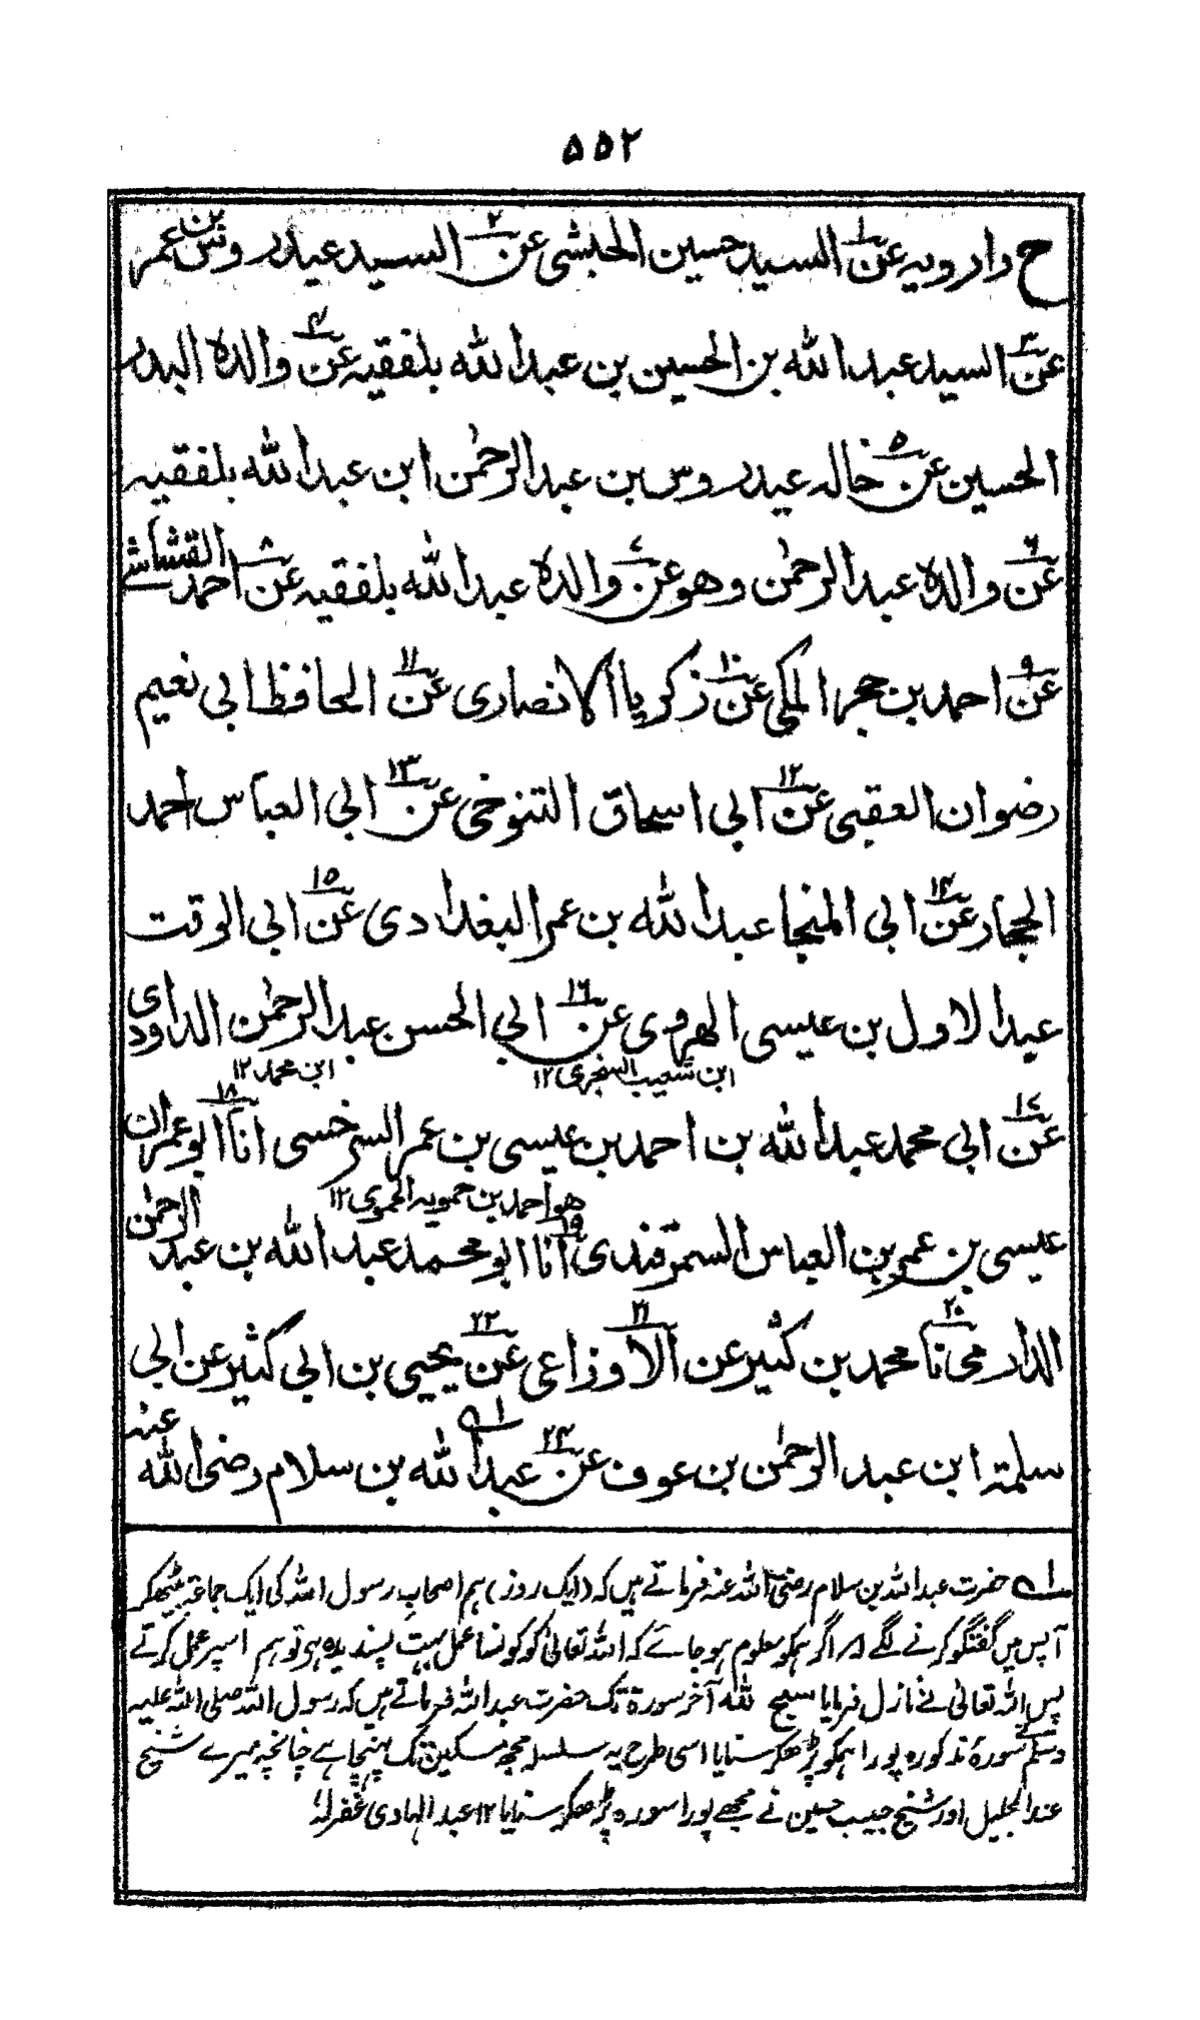 ۵۵۲
ح وارويه عن١ السيد حسين الحبشى عن٢ السيد عيدروس بن عمر
عن٣ السيد عبد الله بن الحسين بن عبد الله بلفقيه عن٤ والده البدر
الحسين عن٥ خاله عيدروس بن عبد الرحمٰن ابن عبد الله بلفقيه
عن٦ والده عبد الرحمٰن وهو عن٧ والده عبد الله بلفقيه عن٨ احمد القشاشے
عن٩ احمد بن حجر المكى عن١٠ زكريا الانصارى عن١١ الحافظ ابى نعيم
رضوان العقبى عن١٢ ابى اسحاق التنوخى عن١٣ ابى العباس احمد
الحجار عن١٤ ابى المنجا عبد الله بن عمر البغدادى عن١٥ ابى الوقت
عبد الاول بن عيسى الهروى عن١٦ ابى الحسن عبد الرحمٰن الداودى
ابن شعيب السنجرى ١٢ ابن محمد ١٢
عن١٧ ابى محمد عبد الله بن احمد بن عيسى بن عمر السرخسى انا١٨ ابو عمران
هو احمد بن حمويه الحموى ١٢
عيسى بن عمر بن العباس السمرقندى انا١٩ ابو محمد عبد الله بن عبد الرحمٰن
الدارمى نا٢٠ محمد بن كثير عن الاوزاعى٢١ عن٢٢ يحيى بن ابى كثير عن ابى
سلمة ابن عبد الرحمٰن بن عوف عن٢٣ عبد الله١ه بن سلام رضى الله عنه
١ه حضرت عبد اللہ بن سلام رضی اللہ عنہ فرماتے ہیں کہ (ایک روز) ہم اصحابِ رسول اللہ کی ایک جماعۃ بیٹھکر
آپس میں گفتگو کرنے لگے اگر ہمکو معلوم ہو جائے کہ اللہ تعالیٰ کو کونسا عمل بہت پسندیدہ ہو تو ہم اسپر عمل کرتے
پس اللہ تعالیٰ نے نازل فرمایا سبح للہ آخر سورۃ تک حضرت عبد اللہ فرماتے ہیں کہ رسول اللہ صلی اللہ علیہ
وسلم نے سورۂ مذکورہ پورا ہمکو پڑھکر سنایا اسی طرح یہ سلسلہ مجھ مسکین تک پہنچا ہے چنانچہ میرے شیخ
عبد الجلیل اور شیخ حبیب حسین نے مجھے پورا سورہ پڑھکر سنایا ۱۲ عبد الہادی غفرلہٗ